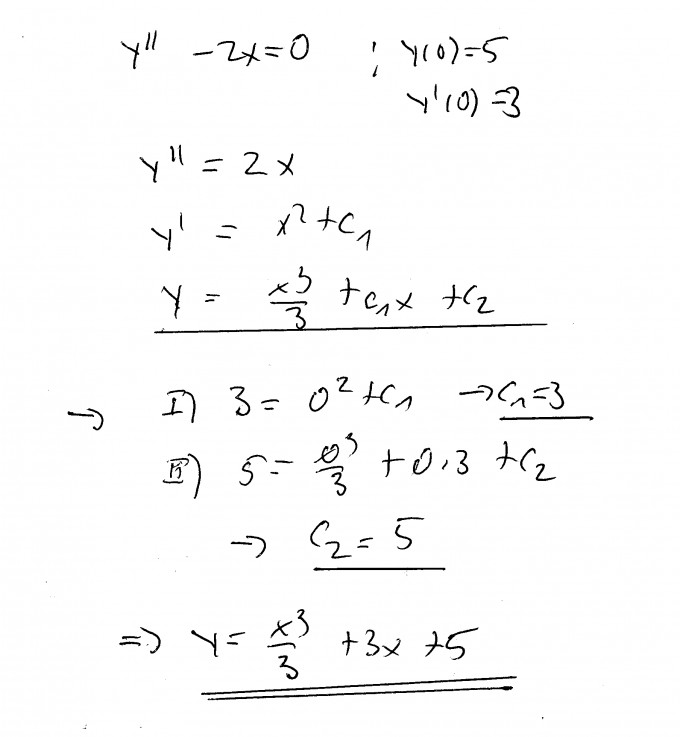 y'' - 2x = 0 ; y(0) = 5
y'(0) = 3
y'' = 2x
y' = x² + c₁
y = x³/3 + c₁x + c₂
→ I) 3 = 0² + c₁ → c₁ = 3
II) 5 = 0³/3 + 0·3 + c₂
→ c₂ = 5
⇒ y = x³/3 + 3x + 5